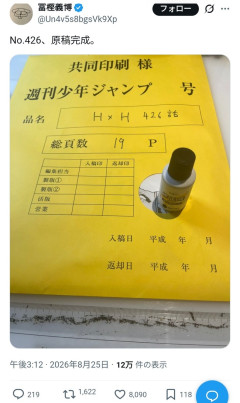 冨樫義博
フォロー
@Un4v5s8bgsVk9Xp
No.426、原稿完成。
共同印刷 様
週刊少年ジャンプ 号
品名 H×H 426話
総頁数 19 P
入稿印 返却印
編集担当
製版①
製版②
活版
営業
入稿日 平成 年 月
返却日 平成 年 月
午後3:12 · 2026年8月25日 · 12万 件の表示
219 1,622 8,090 118